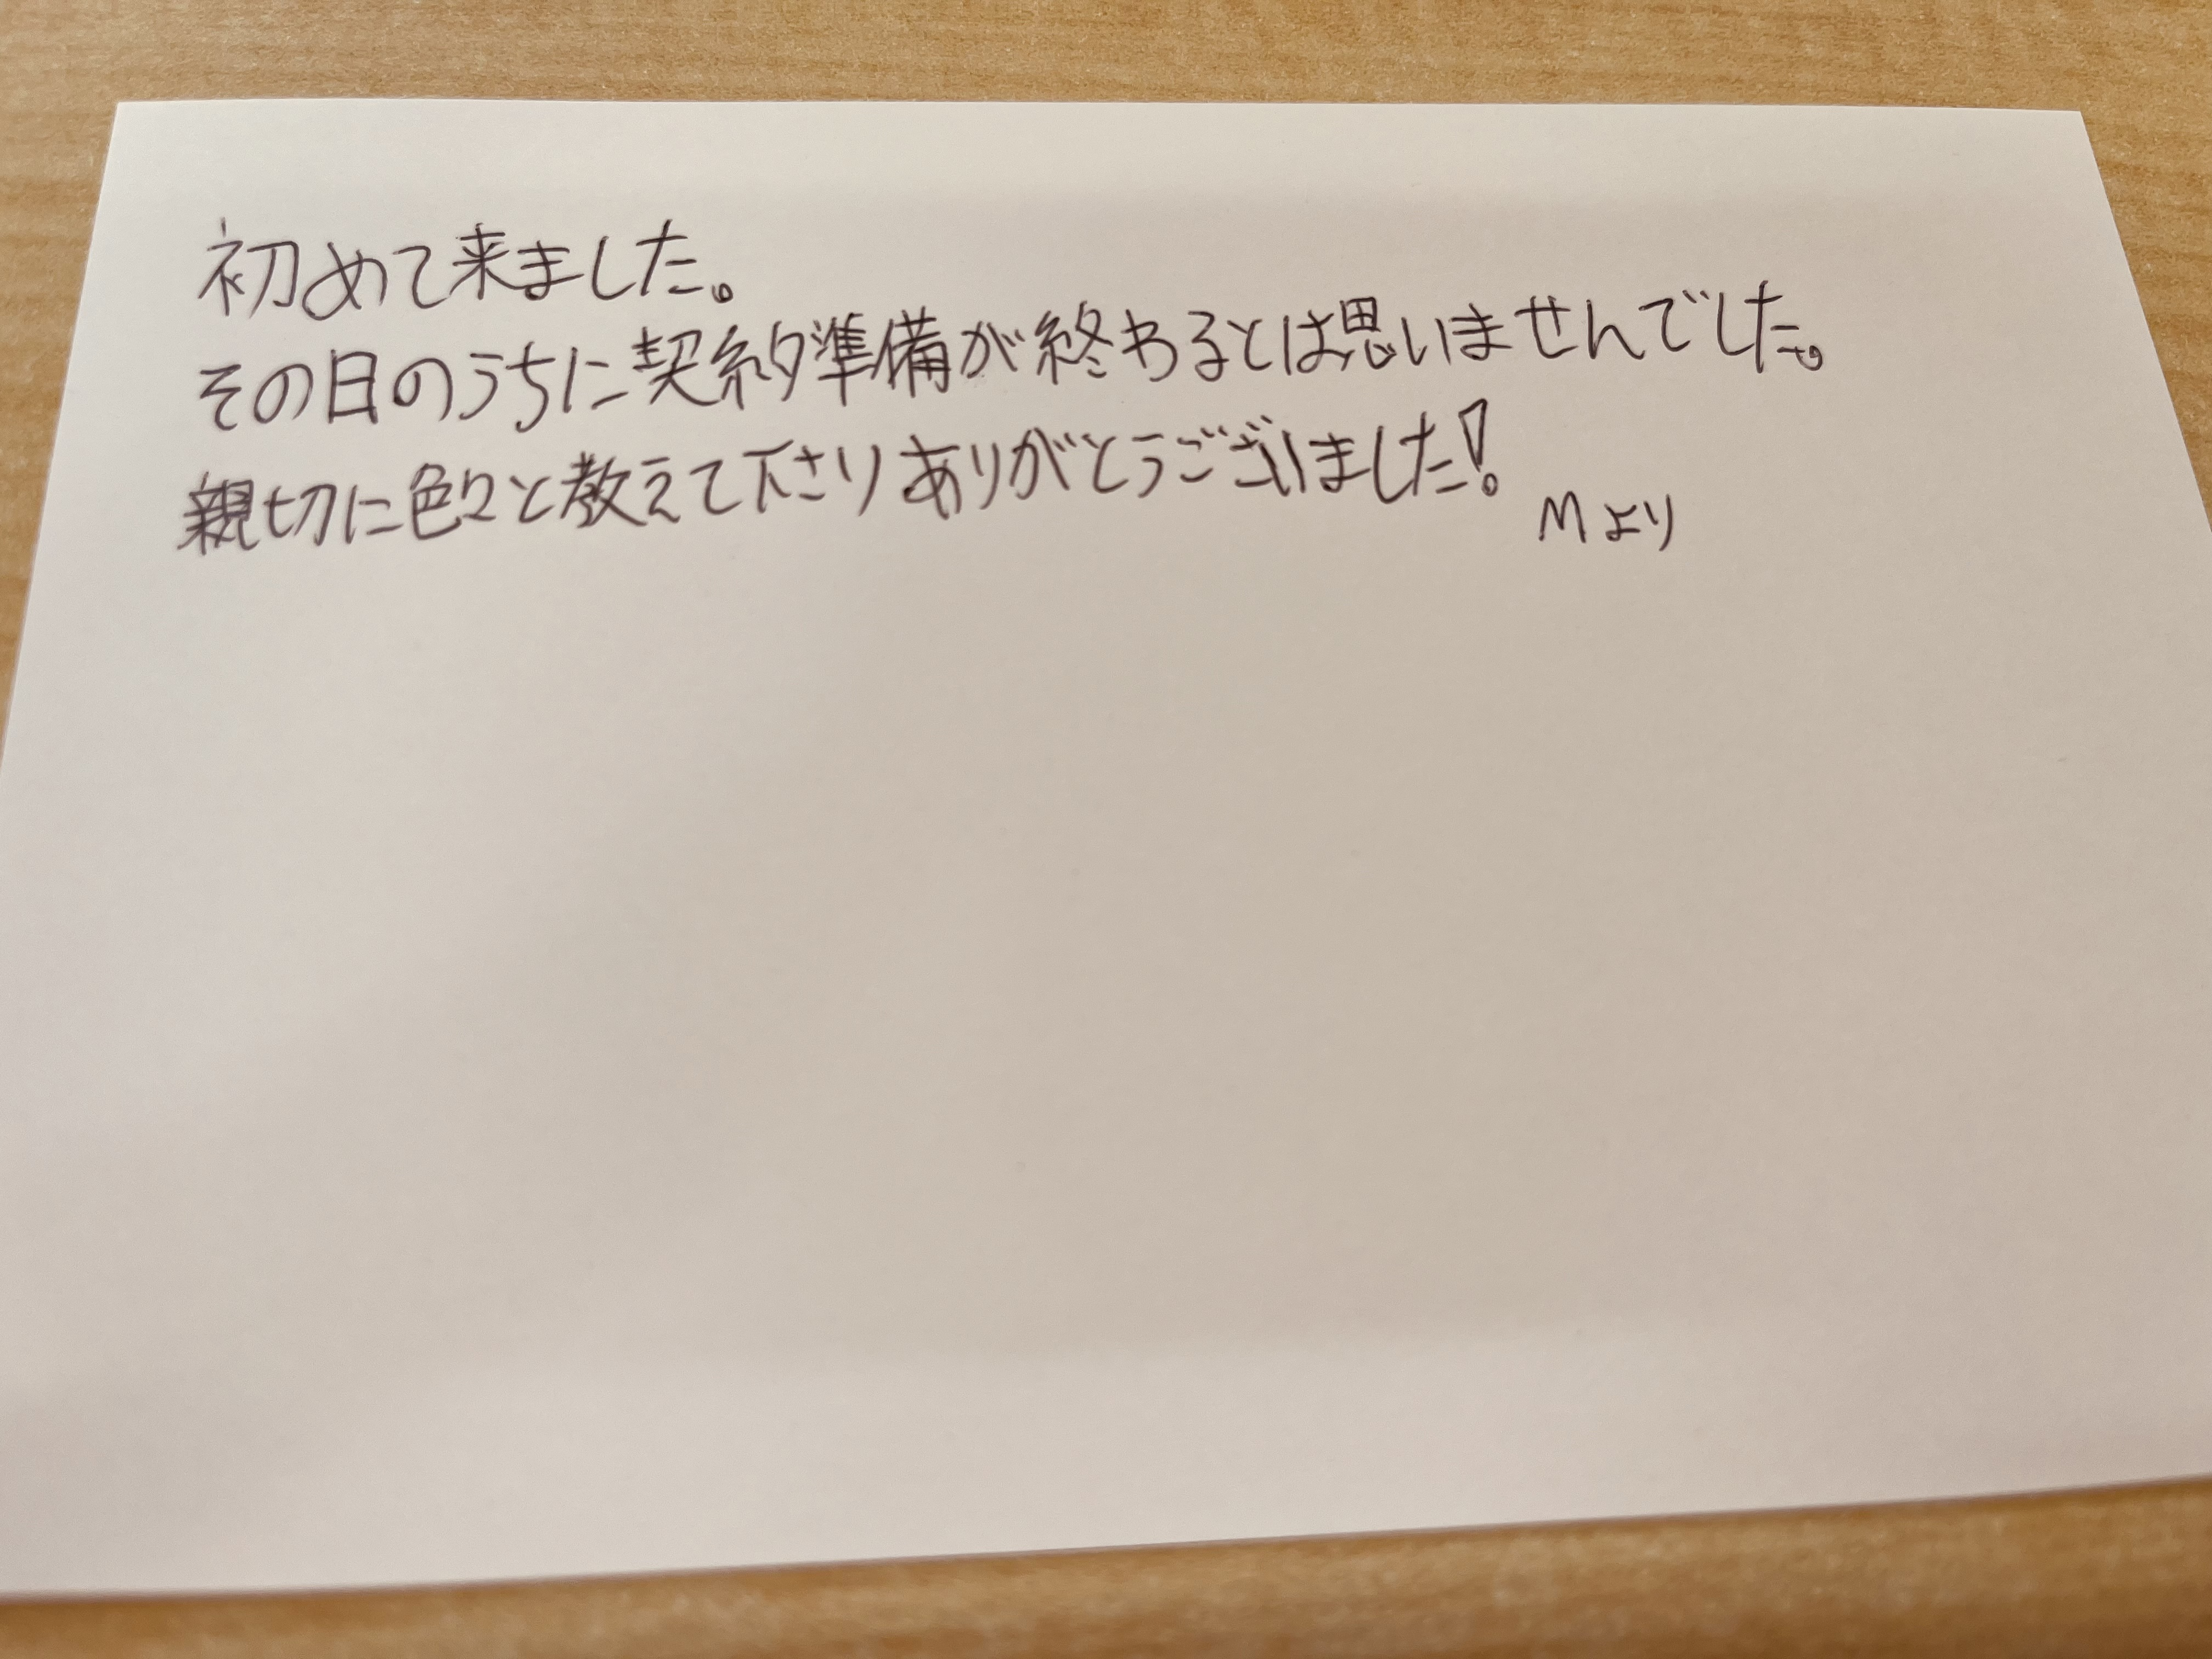 初めて来ました。
その日のうちに契約準備が終わるとは思いませんでした。
親切に色々と教えて下さりありがとうございました!
Mより